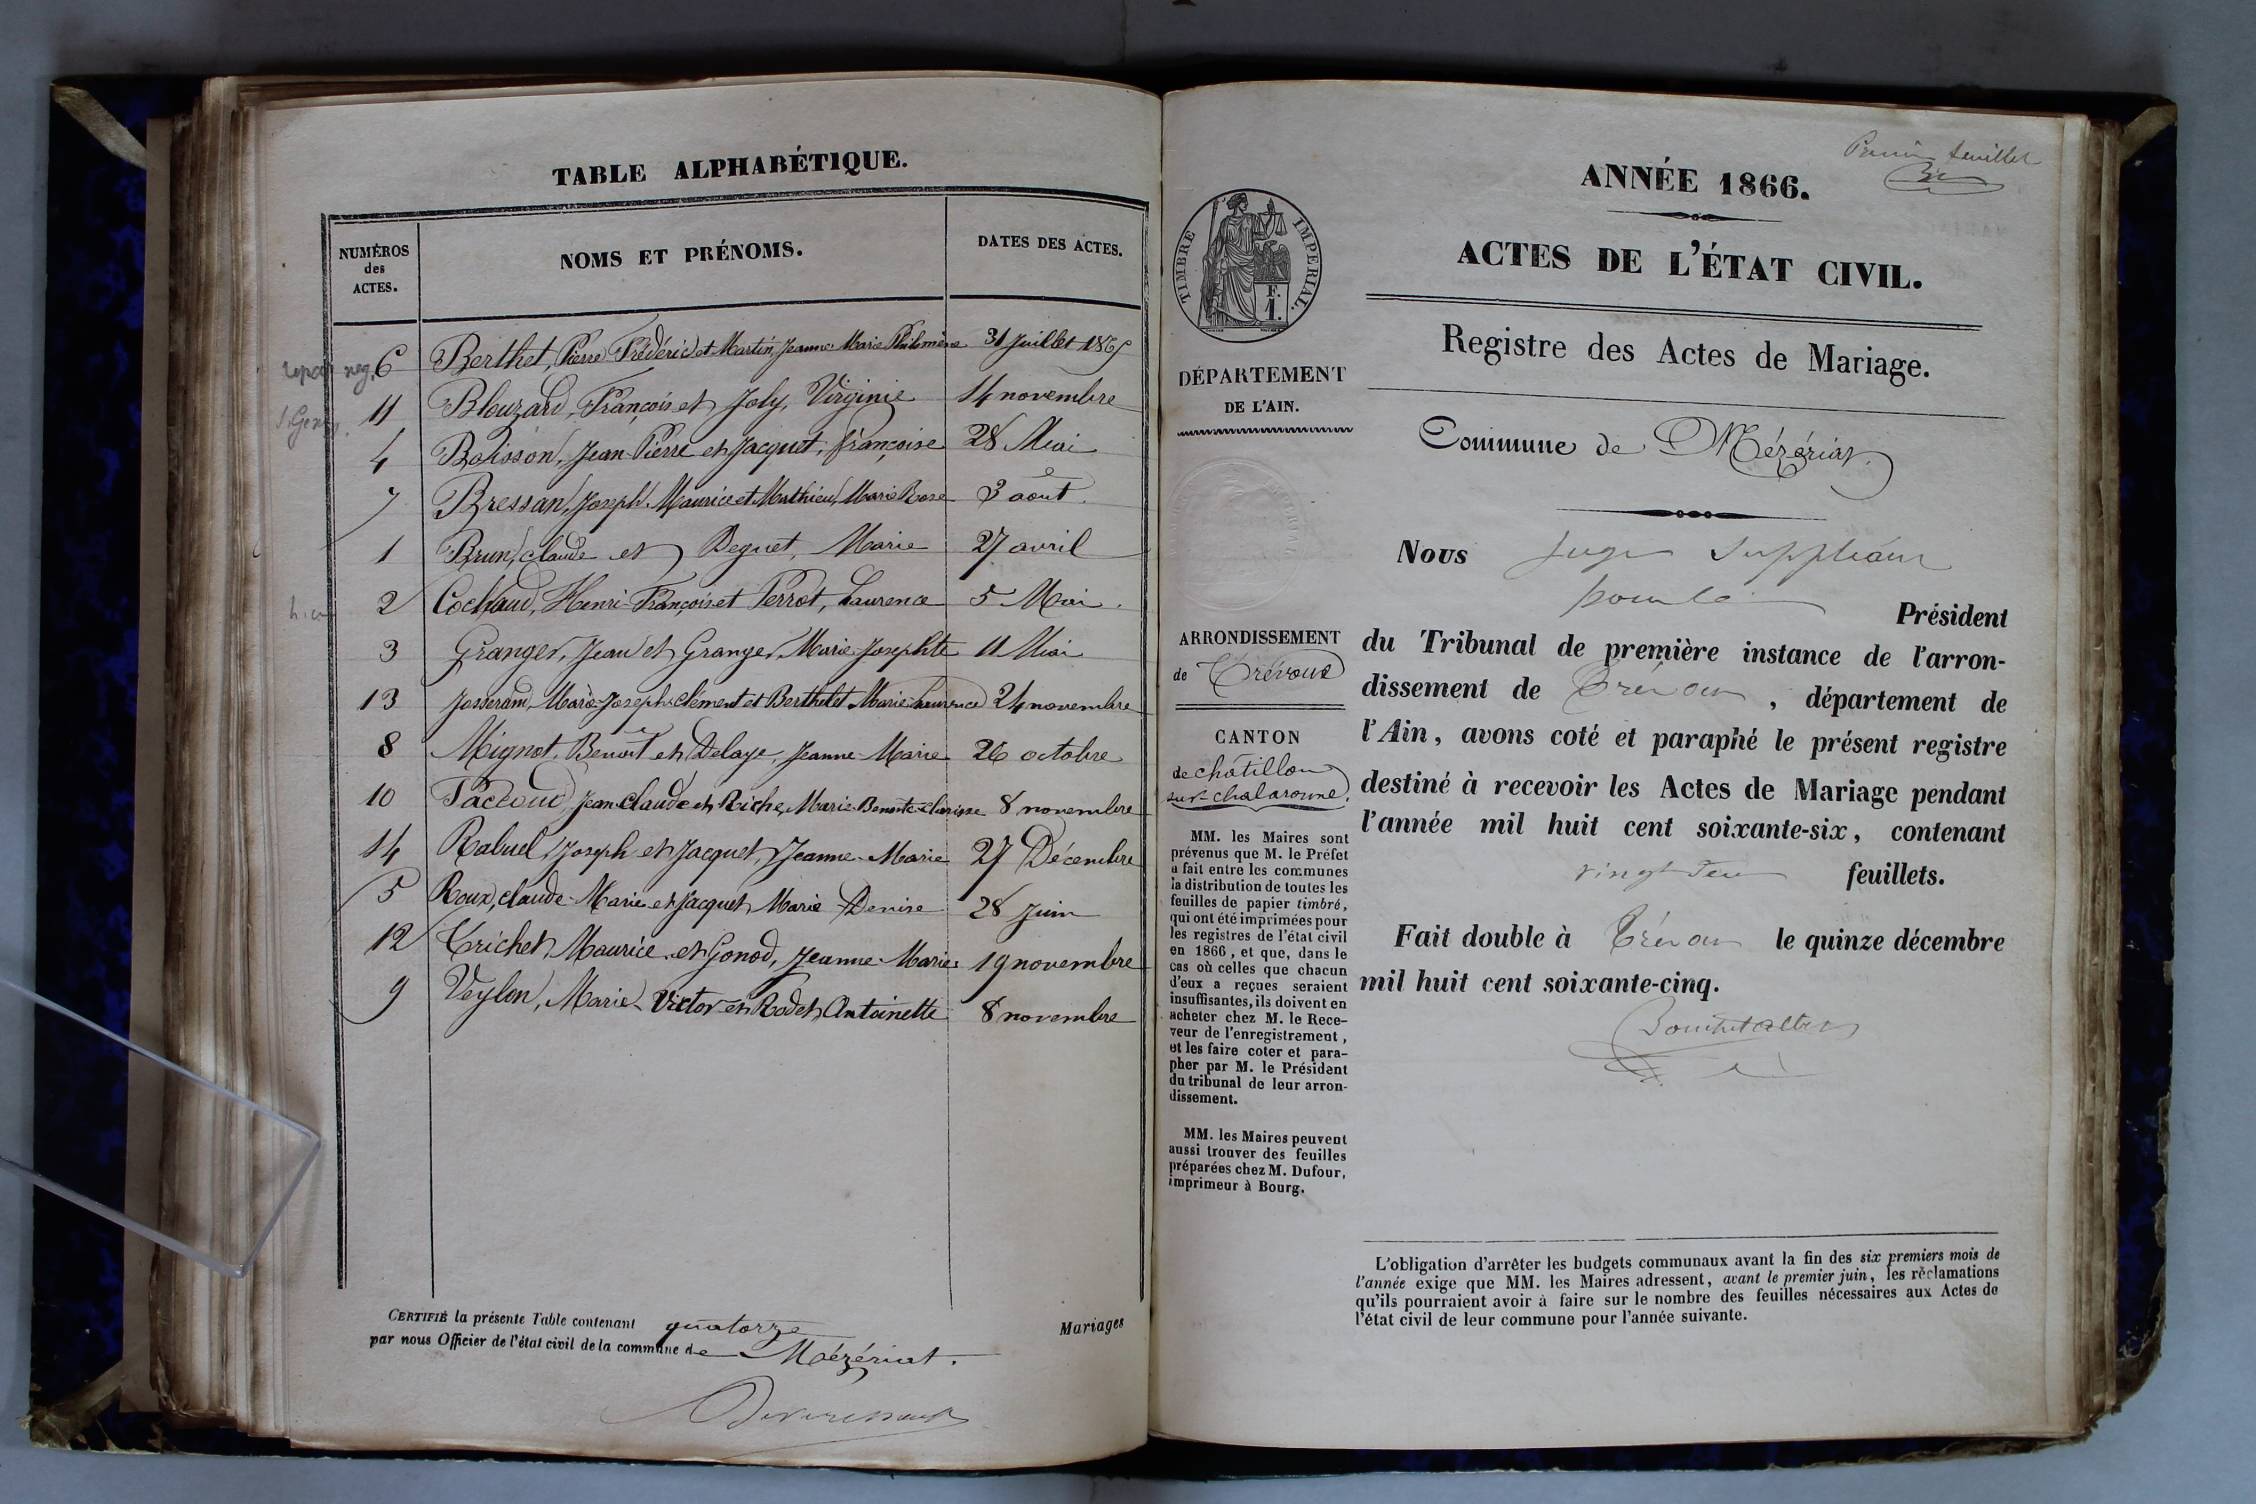 TABLE ALPHABÉTIQUE.
NUMÉROS
des
ACTES.
NOMS ET PRÉNOMS.
DATES DES ACTES.
6 Berthet, Pierre Frédéric et Martin, Jeanne Marie Philomène 31 Juillet 1865
11 Blouzard, François et Joly, Virginie 14 novembre
4 Boisson, Jean Pierre et Jacquet, françoise 28 Mai
7 Bressan, Joseph Maurice et Mathieu, Marie Rose 3 août.
1 Brun, claude et Deguet, Marie 27 avril
2 Cochaud, Henri-François et Perrot, Laurence 5 Mai.
3 Granger, Jean et Granger, Marie Josephte 11 Mai
13 Josserand, Marie-Joseph-Clément et Berthelet Marie Laurence 24 novembre
8 Mignot, Benoît et Delaye, Jeanne-Marie 26 octobre
10 Pacoud, Jean Claude et Riche, Marie-Benoite-Clarisse 8 novembre
14 Rabuel, Joseph et Jacquet, Jeanne-Marie 27 Décembre
5 Roux, claude-Marie et Jacquet, Marie-Denise 28 Juin
12 Trichet, Maurice et Gonod, Jeanne-Marie 19 novembre
9 Veylon, Marie-Victor et Rodet, Antoinette 8 novembre
CERTIFIÉ la présente Table contenant quatorze Mariages
par nous Officier de l'état civil de la commune de Mézériat.
Premier feuillet
ANNÉE 1866.
ACTES DE L'ÉTAT CIVIL.
Registre des Actes de Mariage.
Commune de Mézériat
TIMBRE IMPÉRIAL.
F.
1.
DÉPARTEMENT
DE L'AIN.
ARRONDISSEMENT
de Trévoux
CANTON
de châtillon
sur-chalaronne.
MM. les Maires sont
prévenus que M. le Préfet
a fait entre les communes
la distribution de toutes les
feuilles de papier timbré,
qui ont été imprimées pour
les registres de l'état civil
en 1866, et que, dans le
cas où celles que chacun
d'eux a reçues seraient
insuffisantes, ils doivent en
acheter chez M. le Rece-
veur de l'enregistrement,
et les faire coter et para-
pher par M. le Président
du tribunal de leur arron-
dissement.
MM. les Maires peuvent
aussi trouver des feuilles
préparées chez M. Dufour,
imprimeur à Bourg.
Nous Juge Suppléant
pour le Président
du Tribunal de première instance de l'arron-
dissement de Trévoux, département de
l'Ain, avons coté et paraphé le présent registre
destiné à recevoir les Actes de Mariage pendant
l'année mil huit cent soixante-six, contenant
vingt feuillets.
Fait double à Trévoux le quinze décembre
mil huit cent soixante-cinq.
L'obligation d'arrêter les budgets communaux avant la fin des six premiers mois de
l'année exige que MM. les Maires adressent, avant le premier juin, les réclamations
qu'ils pourraient avoir à faire sur le nombre des feuilles nécessaires aux Actes de
l'état civil de leur commune pour l'année suivante.